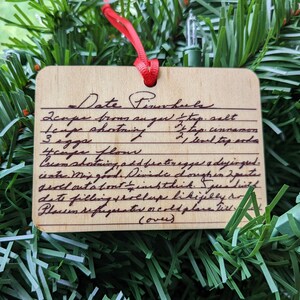 Date Pinwheels
2 cups brown sugar ½ tsp. salt
1 cup shortning ½ tsp cinnamon
3 eggs 1 level tsp soda
4 cups flour
Cream shortning, add fast sugar & dry ingred.
Mix good. Divide dough in 2 parts
roll out about ¼ inch thick spread with
date filling & roll up like jelly
Place in refrigerator or cold place
(over)